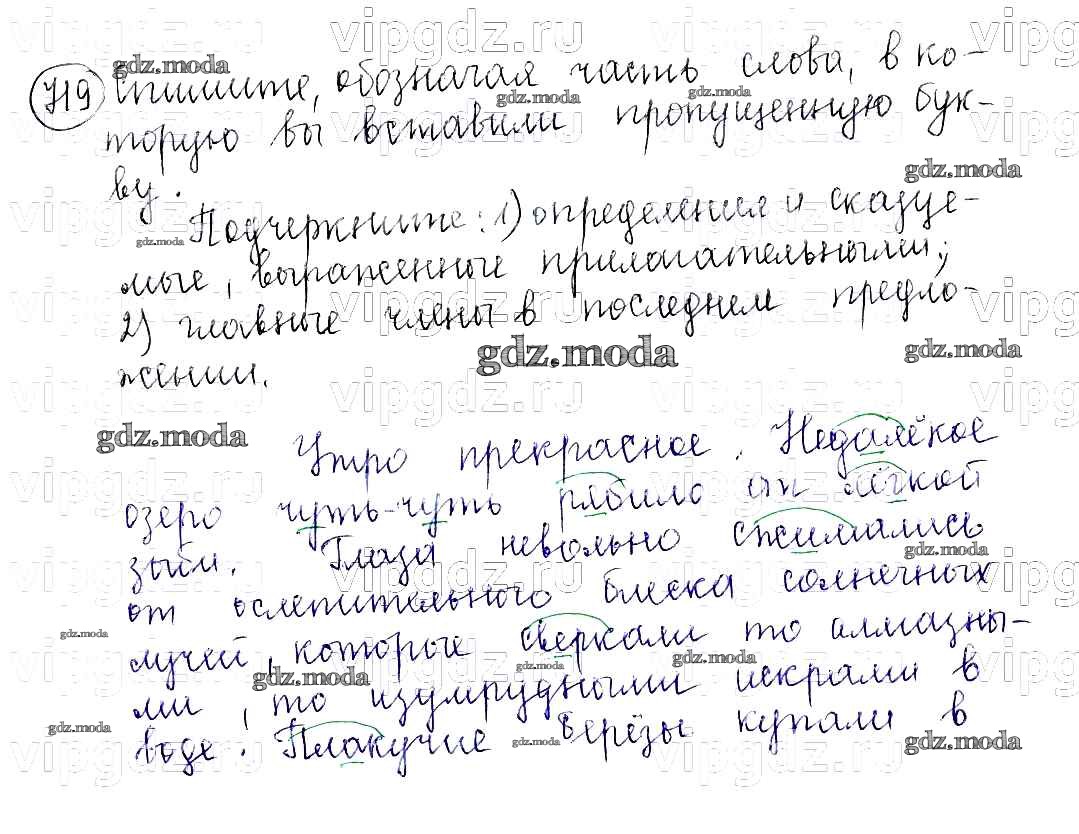 719 Спишите, обозначая часть слова, в ко-
торую вы вставили пропущенную бук-
ву.
Подчеркните: 1) определения и сказуе-
мые, выраженные прилагательными;
2) главные члены в последнем предло-
жении.
Утро прекрасное. Недалёкое
озеро чуть-чуть рябило от лёгкой
зыби. Глаза невольно сжимались
от ослепительного блеска солнечных
лучей, которые сверкали то алмазны-
ми, то изумрудными искрами в
воде. Плакучие берёзы купали в
vipgdz.ru
gdz.moda